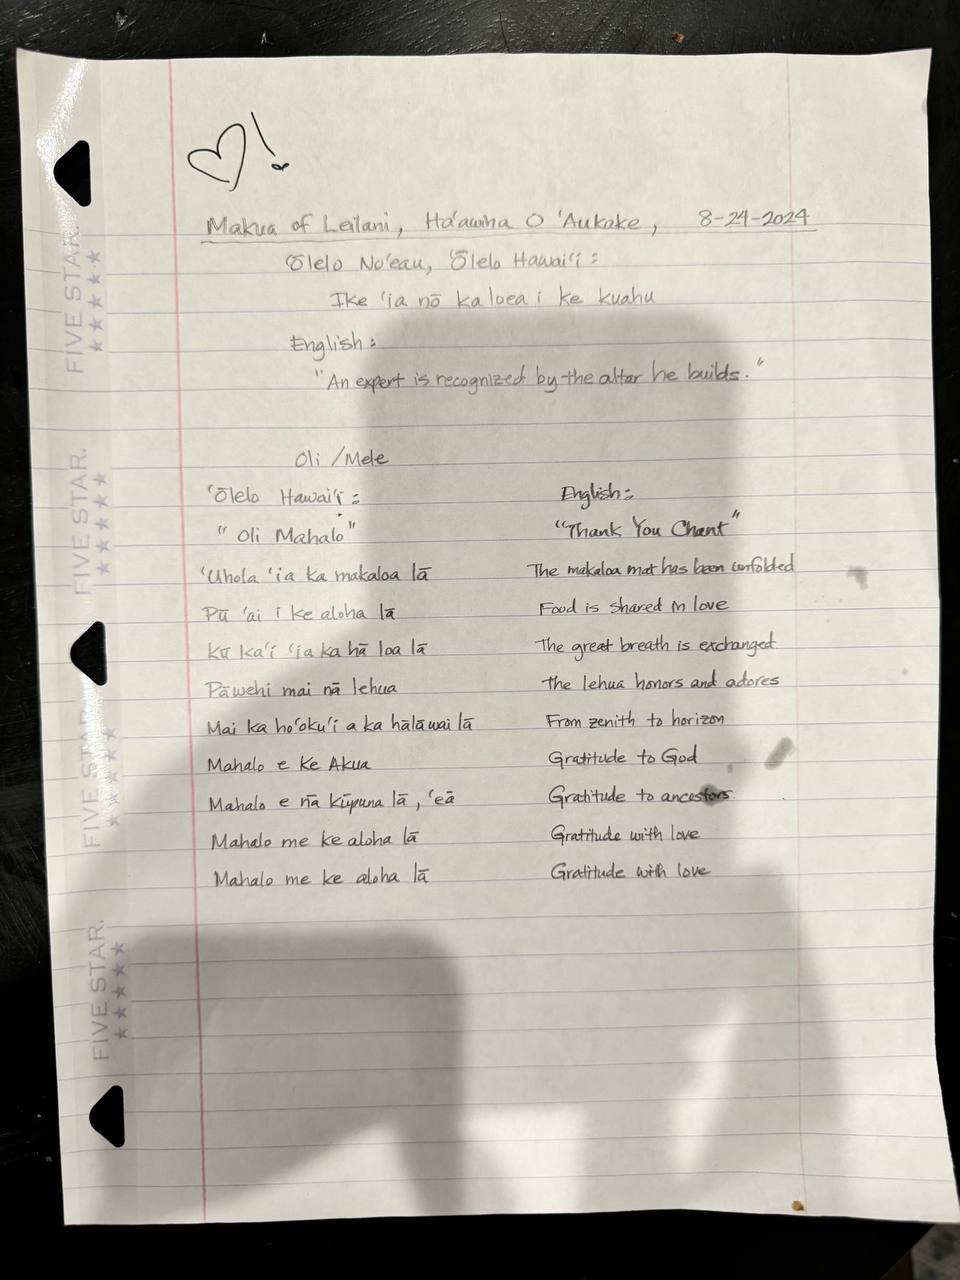 !
Makua of Leilani, Ha'awina O 'Aukake, 8-24-2024
'Ōlelo No'eau, 'Ōlelo Hawai'i:
Ike 'ia nō ka loea i ke kuahu
English:
"An expert is recognized by the altar he builds."
Oli/Mele
'Ōlelo Hawai'i: English:
"Oli Mahalo" "Thank You Chant"
'Uhola 'ia ka makaloa lā The makaloa mat has been unfolded
Pū 'ai i ke aloha lā Food is shared in love
Kū ka'i 'ia ka hā loa lā The great breath is exchanged
Pāwehi mai nā lehua The lehua honors and adores
Mai ka ho'oku'i a ka hālāwai lā From zenith to horizon
Mahalo e Ke Akua Gratitude to God
Mahalo e nā kūpuna lā, 'eā Gratitude to ancestors.
Mahalo me ke aloha lā Gratitude with love
Mahalo me ke aloha lā Gratitude with love
FIVE STAR.
FIVE STAR.
FIVE STAR.
FIVE STAR.